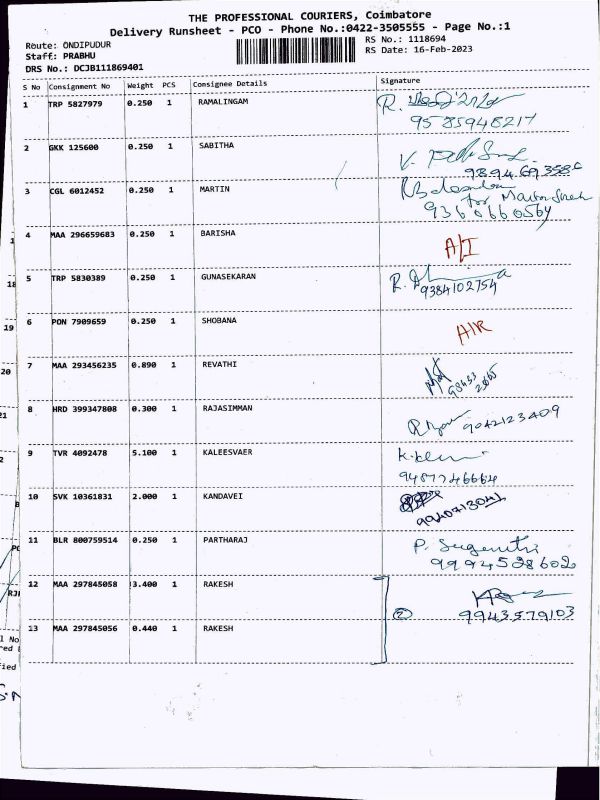 THE PROFESSIONAL COURIERS, Coimbatore
Delivery Runsheet - PCO - Phone No.:0422-3505555 - Page No.:1
Route: ONDIPUDUR
RS No.: 1118694
Staff: PRABHU
RS Date: 16-Feb-2023
DRS No.: DCJB111869401
S No Consignment No Weight PCS Consignee Details Signature
1 TRP 5827979 0.250 1 RAMALINGAM R.
9585948217
2 GKK 125600 0.250 1 SABITHA V.
3 CGL 6012452 0.250 1 MARTIN
for
9360660564
4 MAA 296659683 0.250 1 BARISHA A/I
5 TRP 5830389 0.250 1 GUNASEKARAN R.
9384102754
6 PON 7909659 0.250 1 SHOBANA AIR
7 MAA 293456235 0.890 1 REVATHI
8 HRD 399347808 0.300 1 RAJASIMMAN 9042123409
9 TVR 4092478 5.100 1 KALEESVAER
9487746664
10 SVK 10361831 2.000 1 KANDAVEI
9940713041
11 BLR 800759514 0.250 1 PARTHARAJ P.
9994528602
12 MAA 297845058 3.400 1 RAKESH
② 9943579103
13 MAA 297845056 0.440 1 RAKESH